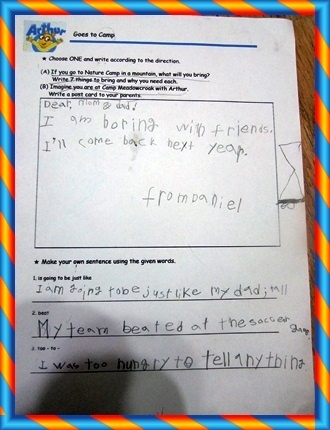 Arthur
Goes to Camp
★ Choose ONE and write according to the direction.
(A) If you go to Nature Camp in a mountain, what will you bring?
Write 7 things to bring and why you need each.
(B) Imagine you are at Camp Meadowcroak with Arthur.
Write a post card to your parents.
Dear, mom & dad!
I am boring with friends.
I'll come back next year.
from Daniel
★ Make your own sentence using the given words.
1. is going to be just like
I am going to be just like my dad; tall
2. beat
My team beated at the soccer game
3. too ~ to ~
I was too hungry to tell anything